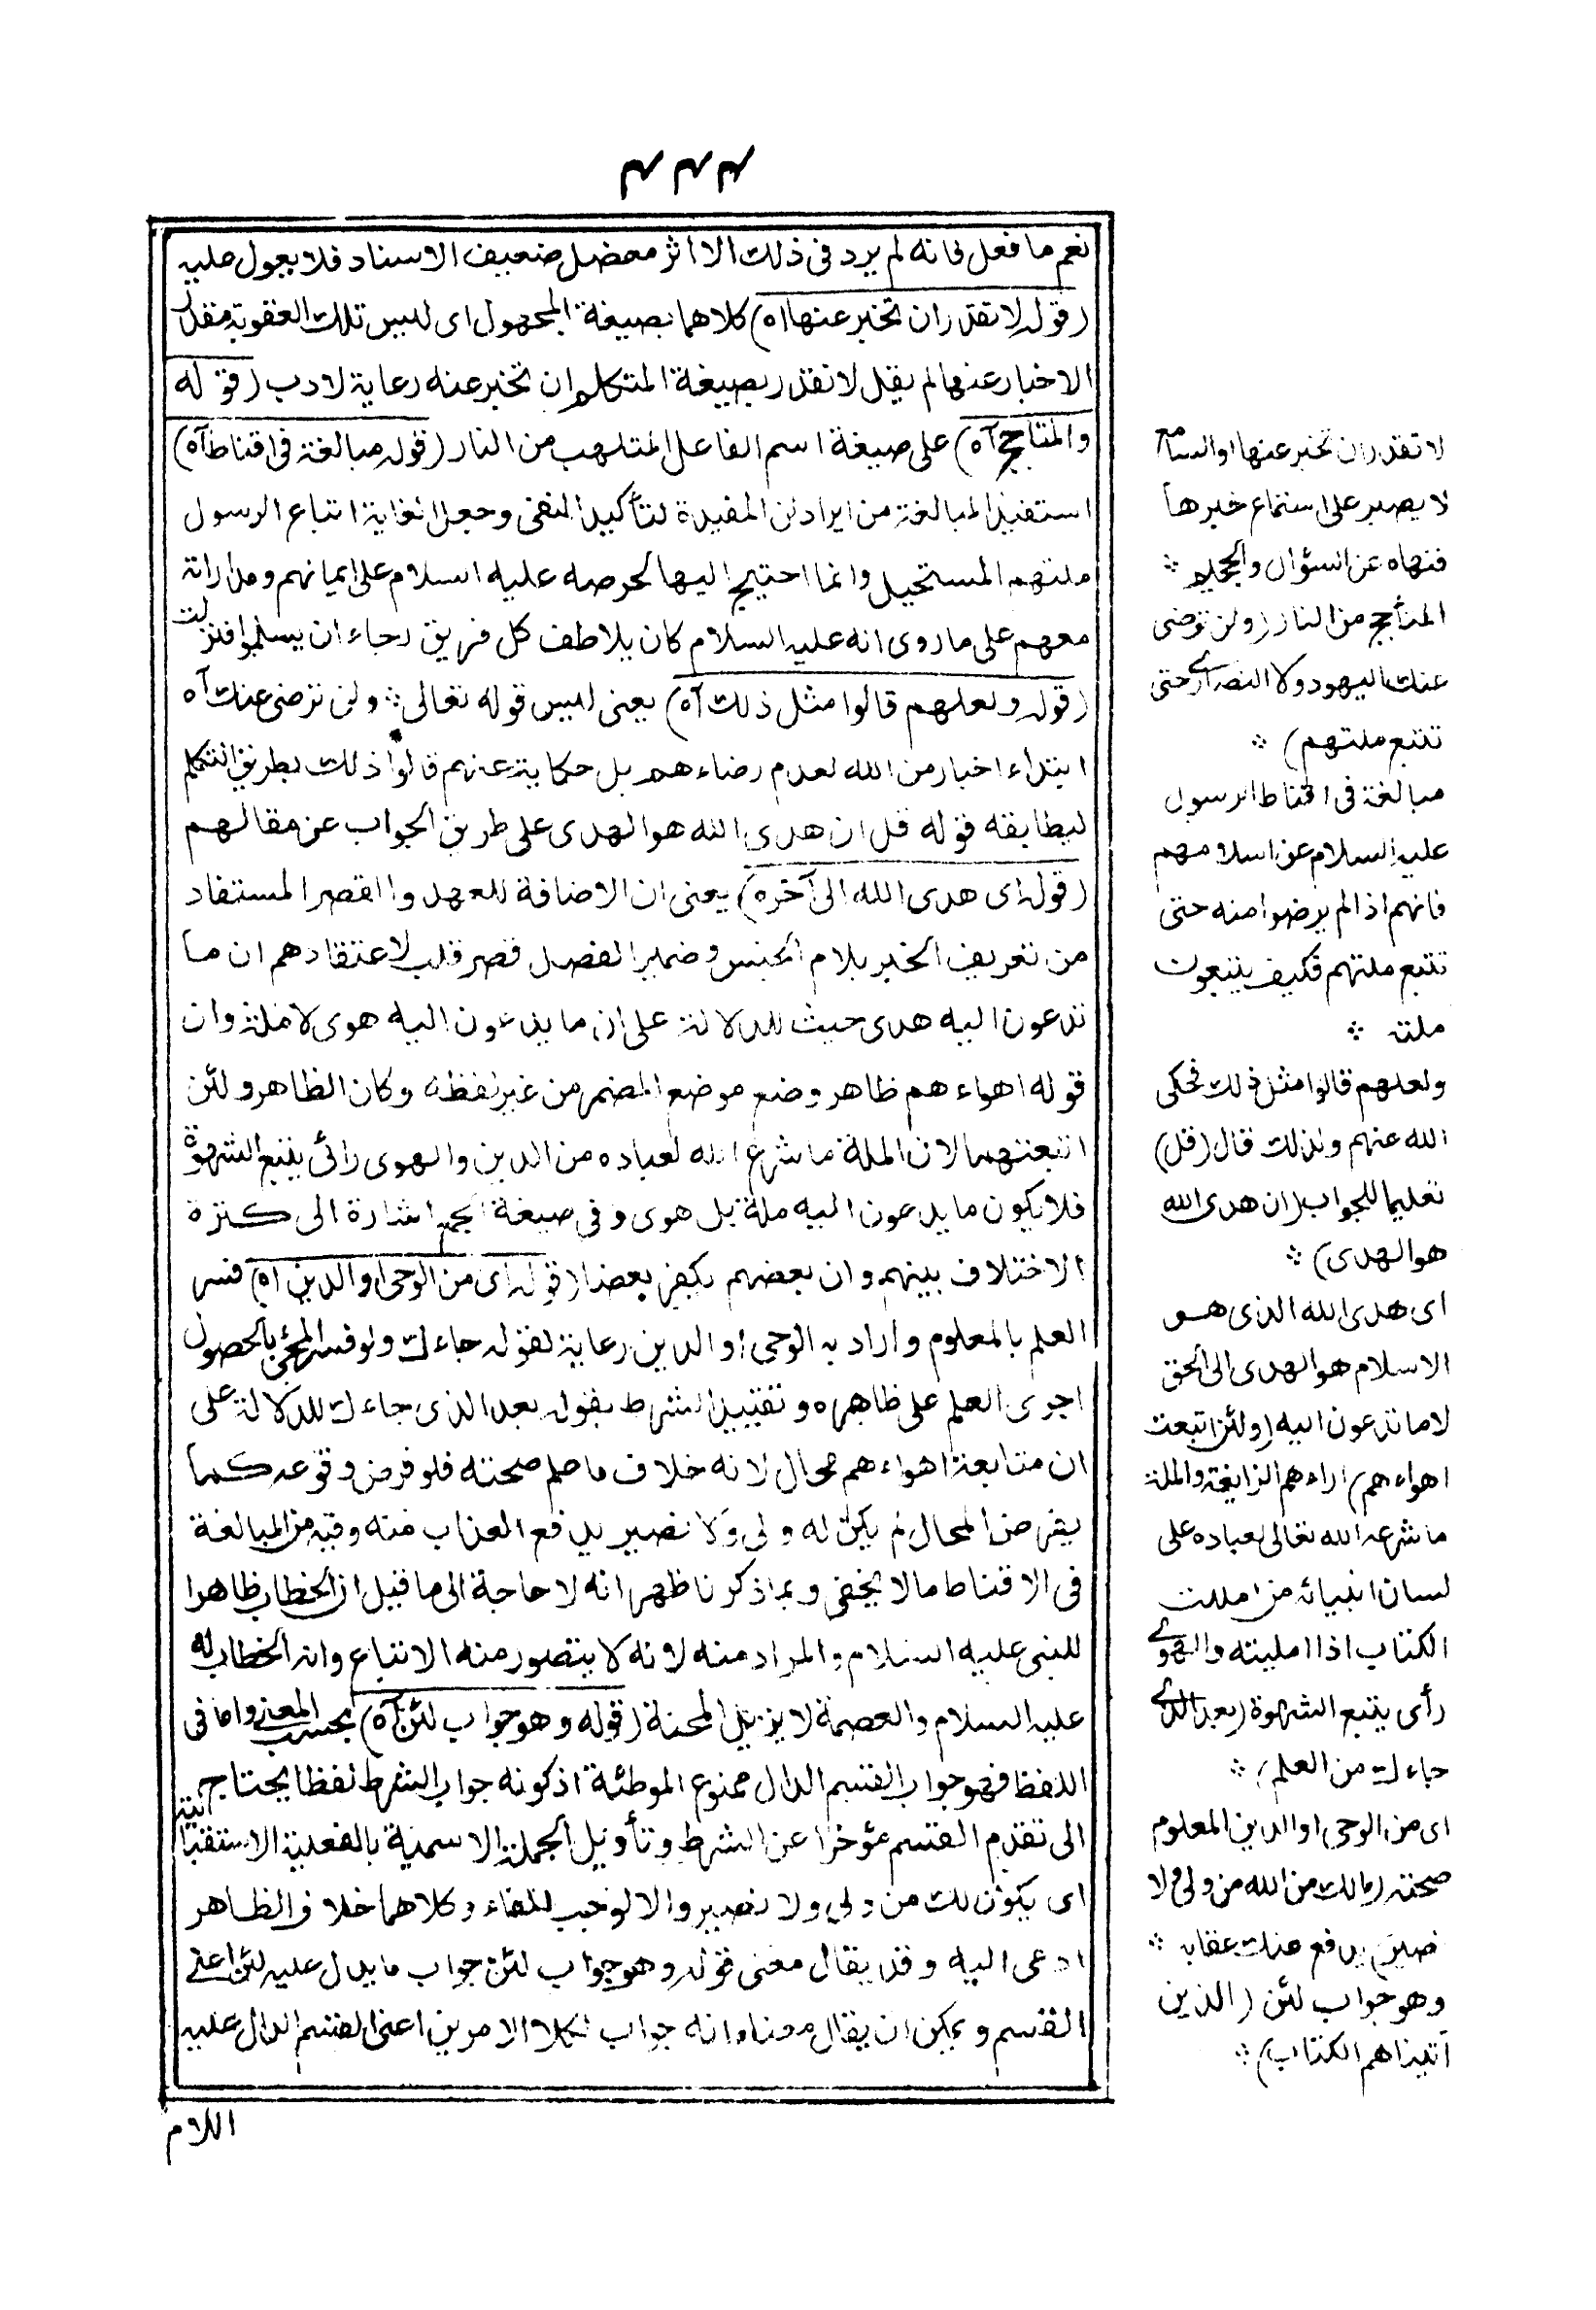 ٣٣٣
نعم ما فعل فانه لم يرد فى ذلك الا اثر معضل ضعيف الاسناد فلا يعول عليه
(قوله لا تقدر ان تخبر عنها اه) كلاهما بصيغة المجهول اى ليس تلك العقوبة مقدار
الاخبار عنها لم يقل لا نقدر بصيغة المتكلم ان تخبر عنه رعاية لادب (قوله
والمتأجج آه) على صيغة اسم الفاعل المتلهب من النار (قوله مبالغة فى اقناط آه)
استفيد المبالغة من ايراد لن المفيدة لتأكيد النفى وجعل الغاية اتباع الرسول
ملتهم المستحيل وانما احتيج اليها لحرصه عليه السلام على ايمانهم ومداراته
معهم على ما روى انه عليه السلام كان يلاطف كل فريق رجاء ان يسلموا فنزلت
(قوله ولعلهم قالوا مثل ذلك آه) يعنى ليس قوله تعالى ؞ ولن ترضى عنك آه
ابتداء اخبار من الله لعدم رضاءهم بل حكاية عنهم قالوا ذلك بطريق التكلم
ليطابقه قوله قل ان هدى الله هو الهدى على طريق الجواب عن مقالهم
(قوله اى هدى الله الى آخره) يعنى ان الاضافة للعهد والقصر المستفاد
من تعريف الخبر بلام الجنس وضمير الفصل قصر قلب لاعتقادهم ان ما
تدعون اليه هدى حيث للدلالة على ان ما يدعون اليه هوى لا ملة وان
قوله اهواءهم ظاهر وضع موضع المضمر من غير لفظه وكان الظاهر ولئن
اتبعتهما لان الملة ما شرع الله لعباده من الدين والهوى رائى يتبع الشهوة
فلا يكون ما يدعون اليه ملة بل هوى وفى صيغة الجمع اشارة الى كثرة
الاختلاف بينهم وان بعضهم يكفر بعضا (قوله اى من الوحى او الدين اه) فسر
العلم بالمعلوم واراد به الوحى او الدين رعاية لقوله جاءك ولو فسر المجئ بالحصول
اجرى العلم على ظاهره وتقييد الشرط بقوله بعد الذى جاءك للدلالة على
ان متابعة اهواءهم محال لانه خلاف ما علم صحته فلو فرض وقوعه كما
يفرض المحال لم يكن له ولى ولا نصير يدفع العذاب منه وفيه من المبالغة
فى الاقناط مالا يخفى وبما ذكرنا ظهر انه لا حاجة الى ما قيل ان الخطاب ظاهرا
للنبى عليه السلام والمراد منه لانه لا يتصور منه الاتباع وان الخطاب له
عليه السلام والعصمة لا يزيل المحنة (قوله وهو جواب لئن آه) بحسب المعنى واما فى
اللفظ فهو جواب القسم الدال ممنوع الموطئة اذ كونه جواب الشرط لفظا يحتاج
الى تقدم القسم مؤخرا عن الشرط وتأويل الجملة الاسمية بالفعلية الاستقبالية
اى يكون لك من ولى ولا نصير والا لوجب الفاء وكلاهما خلاف الظاهر
ادعى اليه وقد يقال معنى قوله وهو جواب لئن جواب ما يدل عليه لئن اعنى
القسم ويمكن ان يقال معناه انه جواب لكلا الامرين اعنى القسم الدال عليه
اللام
لا تقدر ان تخبر عنها او السامع
لا يصبر على استماع خبرها
فنهاه عن السؤال والجحيم ؞
المتأجج من النار (ولن ترضى
عنك اليهود ولا النصارى حتى
تتبع ملتهم) ؞
مبالغة فى اقناط الرسول
عليه السلام عن اسلامهم
فانهم اذا لم يرضوا منه حتى
تتبع ملتهم فكيف يتبعون
ملته ؞
ولعلهم قالوا مثل ذلك فحكى
الله عنهم ولذلك قال (قل)
تعليما للجواب (ان هدى الله
هو الهدى) ؞
اى هدى الله الذى هو
الاسلام هو الهدى الى الحق
لا ما تدعون اليه (ولئن اتبعت
اهواءهم) اراءهم الزايغة والملة
ما شرعه الله تعالى لعباده على
لسان انبيائه من امللت
الكتاب اذا امليته والهوى
رأى يتبع الشهوة (بعد الذى
جاءك من العلم) ؞
اى من الوحى او الدين المعلوم
صحته (مالك من الله من ولى ولا
نصير) يدفع عنك عقابه ؞
وهو جواب لئن (الذين
آتيناهم الكتاب) ؞